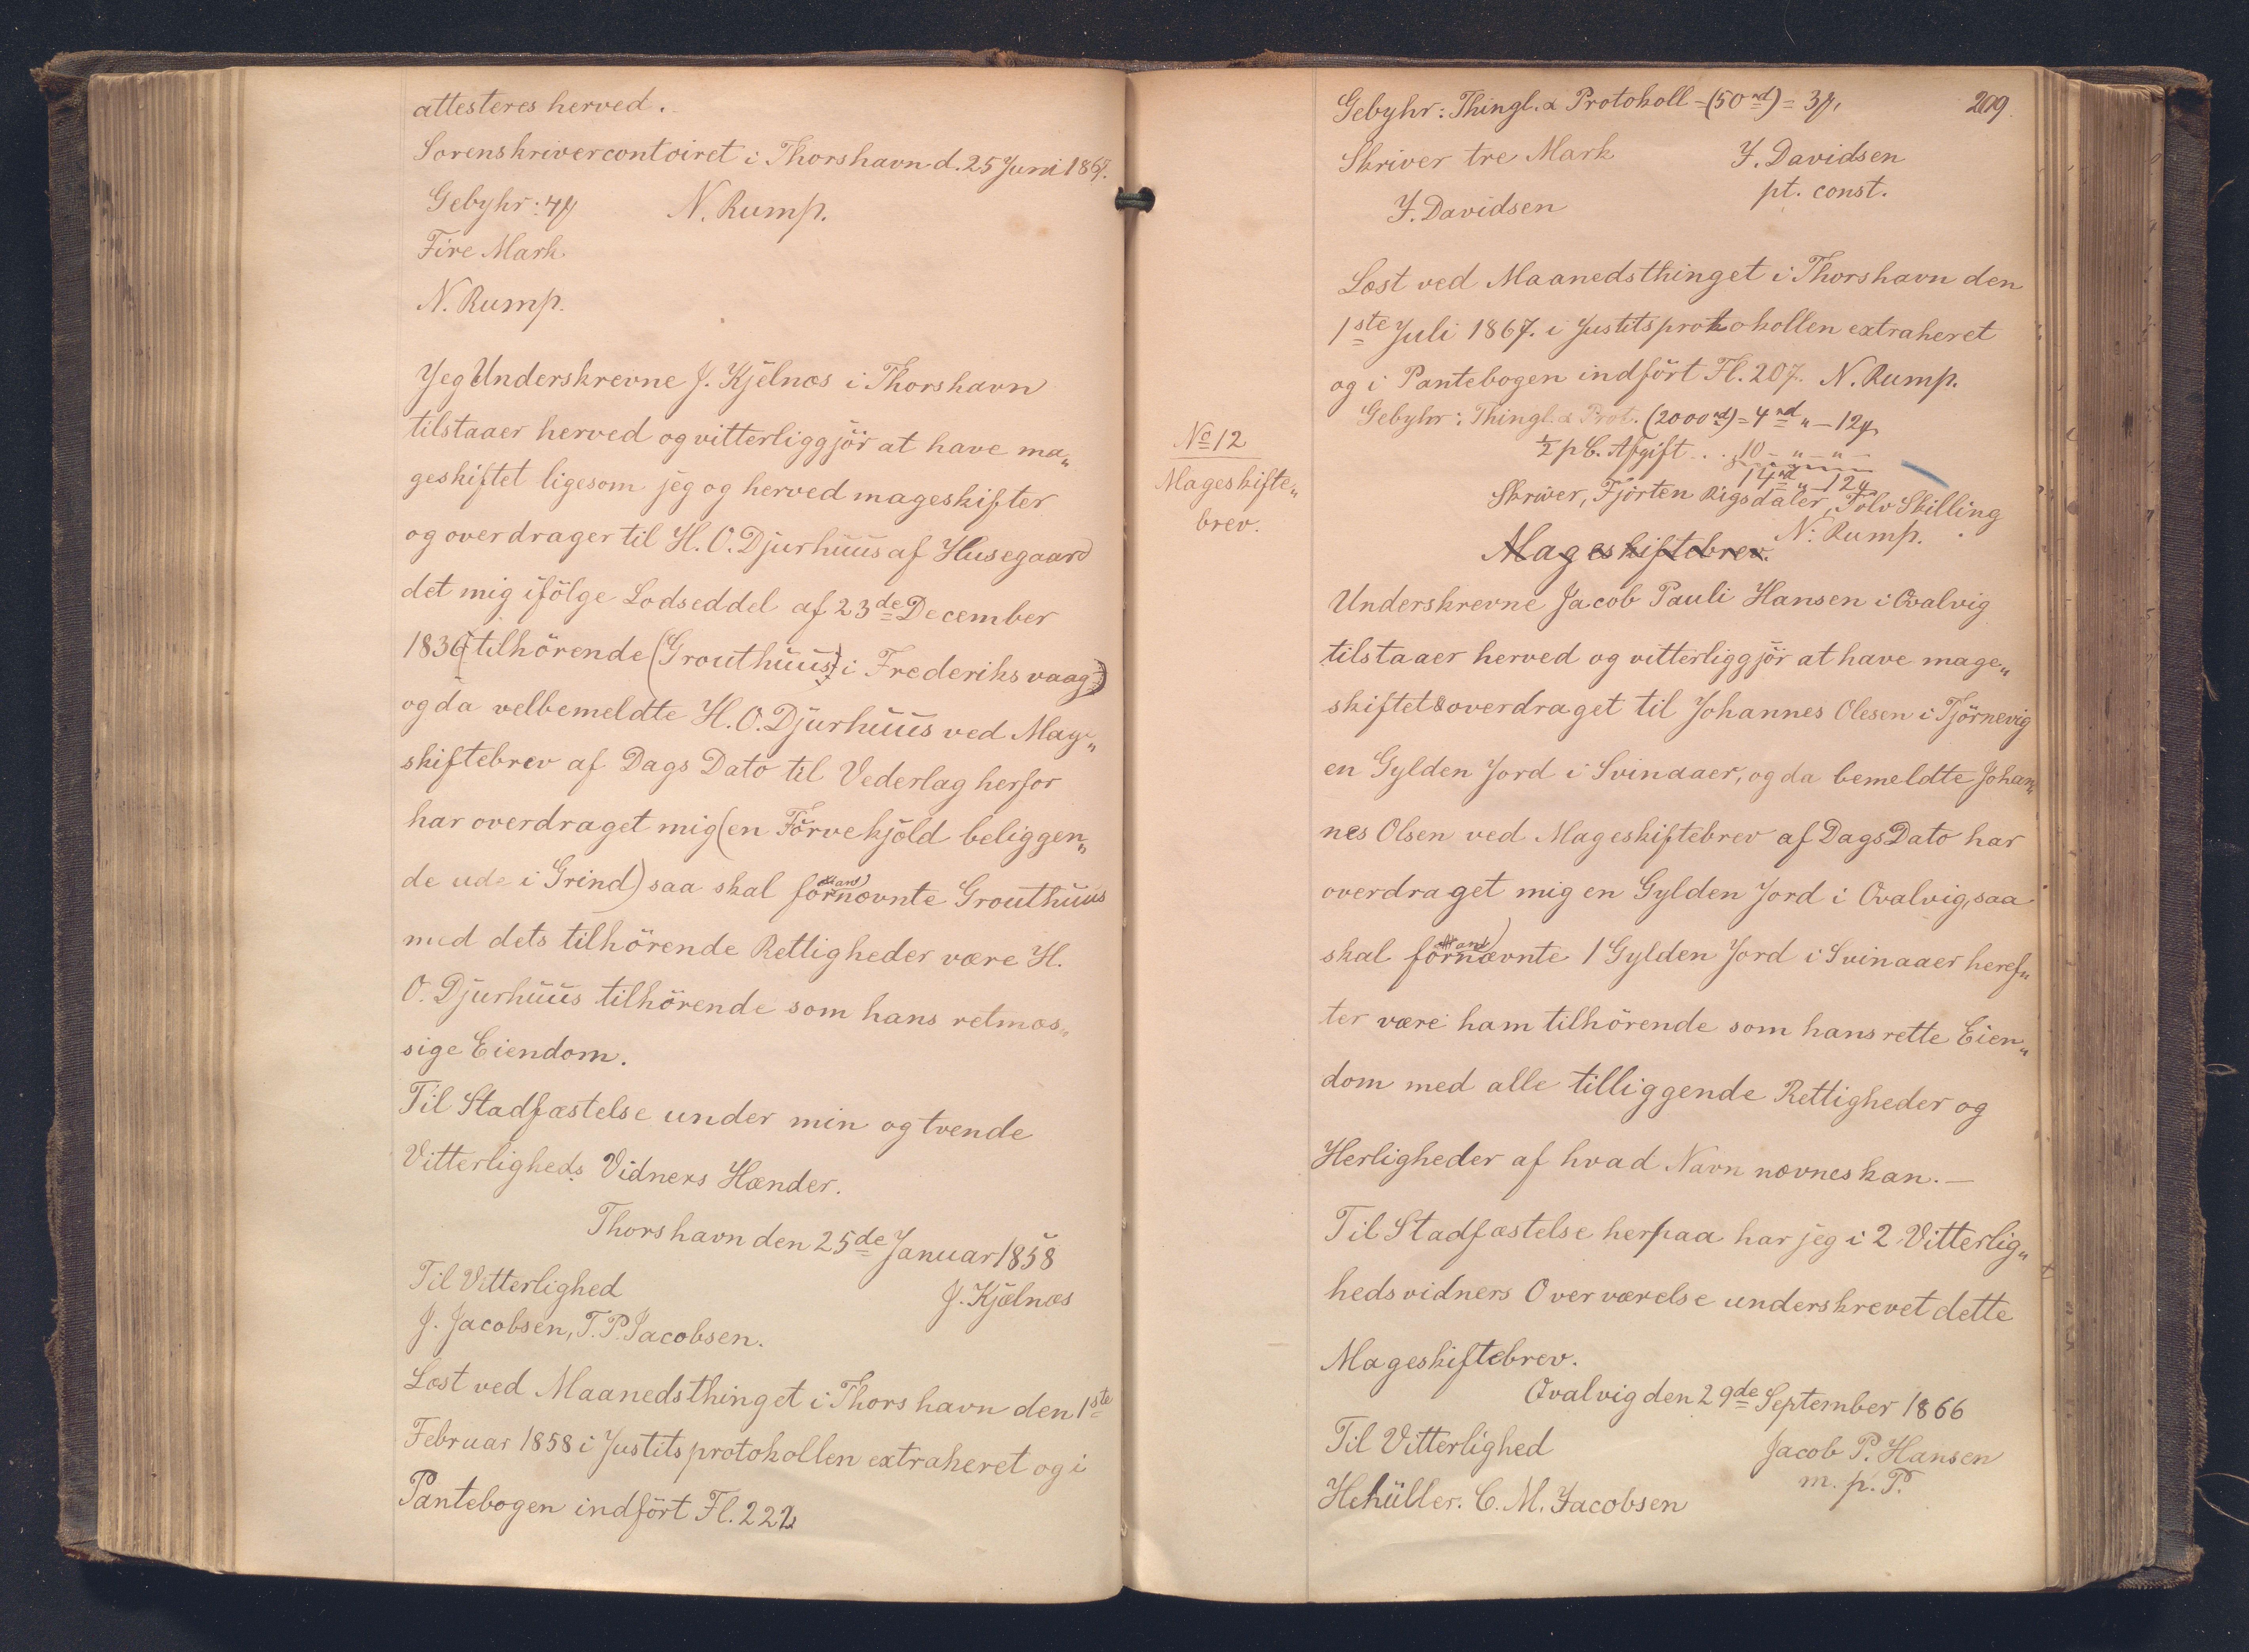 attesteres herved.
Sorenskrivercontoiret i Thorshavn d. 25 Juni 1867.
Gebyhr: 4ꝡ N. Rump.
Fire Mark
N. Rump.
Jeg Underskrevne J. Kjelnæs i Thorshavn
tilstaaer herved og vitterliggjör at have ma„
geskiftet ligesom jeg og herved mageskifter
og overdrager til H. O. Djurhuus af Husegaard
det mig ifölge Lodseddel af 23de December
1836 tilhörende (Grouthuus) i Frederiksvaag)
og da velbemeldte H. O. Djurhuus ved Mage„
skiftebrev af Dags Dato til Vederlag herfor
har overdraget mig (en Törvekjöld beliggen„
de ude i Grind) saa skal fornævnte Grouthuus
med dets tilhörende Rettigheder være H.
O. Djurhuus tilhörende som hans retmæs„
sige Eiendom.
Til Stadfæstelse under min og tvende
Vitterligheds Vidners Hænder.
Thorshavn den 25de Januar 1858
Til Vitterlighed J. Kjælnæs
J. Jacobsen, T. P. Jacobsen.
Læst ved Maanedsthinget i Thorshavn den 1ste
Februar 1858 i Justitsprotokollen extraheret og i
Pantebogen indfört Fl. 222
209.
Gebyhr: Thingl. & Protokoll - (50 rd) = 3ꝡ,
Skriver tre Mark J. Davidsen
J. Davidsen pt. const.
Læst ved Maanedsthinget i Thorshavn den
1ste Juli 1867. i Justitsprotokollen extraheret
og i Pantebogen indfört Fl. 207. N. Rump.
Gebyhr: Thingl. & Prot. (2000 rd) = 4 rd „ - 12
½ p C. Afgift . . . 10 - „ - „ -
14 rd „ 12
Skriver, Fjorten Rigsdaler, Tolv Skilling
N. Rump.
Mageskiftebrev.
No 12
Mageskifte„
brev.
Underskrevne Jacob Pauli Hansen i Qvalvig
tilstaaer herved og vitterliggjör at have mage„
skiftet & overdraget til Johannes Olesen i Tjörnevig
en Gylden Jord i Svinaaer, og da bemeldte Johan„
nes Olsen ved Mageskiftebrev af Dags Dato har
overdraget mig en Gylden Jord i Qvalvig, saa
skal fornævnte 1 Gylden Jord i Svinaaer heref„
ter være ham tilhörende som hans rette Eien„
dom med alle tilliggende Rettigheder og
Herligheder af hvad Navn nævnes kan. —
Til Stadfæstelse herpaa har jeg i 2 Vitterlig„
hedsvidners Overværelse underskrevet dette
Mageskiftebrev.
Qvalvig den 29de September 1866
Til Vitterlighed Jacob P. Hansen
m. p. P.
C. M. Jacobsen